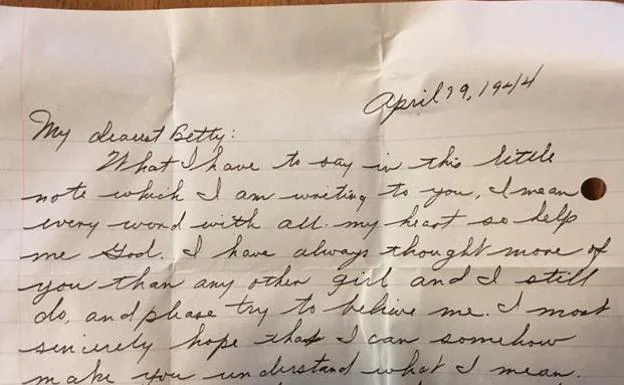 April 29, 1944
My dearest Betty:
What I have to say in this little
note which I am writing to you, I mean
every word with all my heart so help
me God. I have always thought more of
you than any other girl and I still
do, and please try to believe me. I most
sincerely hope that I can somehow
make you understand what I mean.